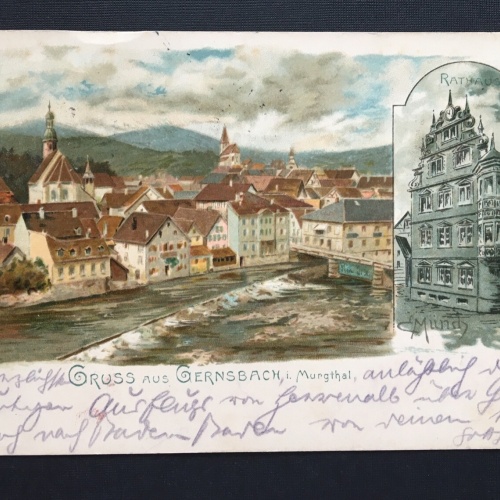 RATHAUS
C Münch
GRUSS AUS GERNSBACH, i. Murgthal, anläßlich d
Ausflugs von Herrenalb über
nach Baden Baden von deinem